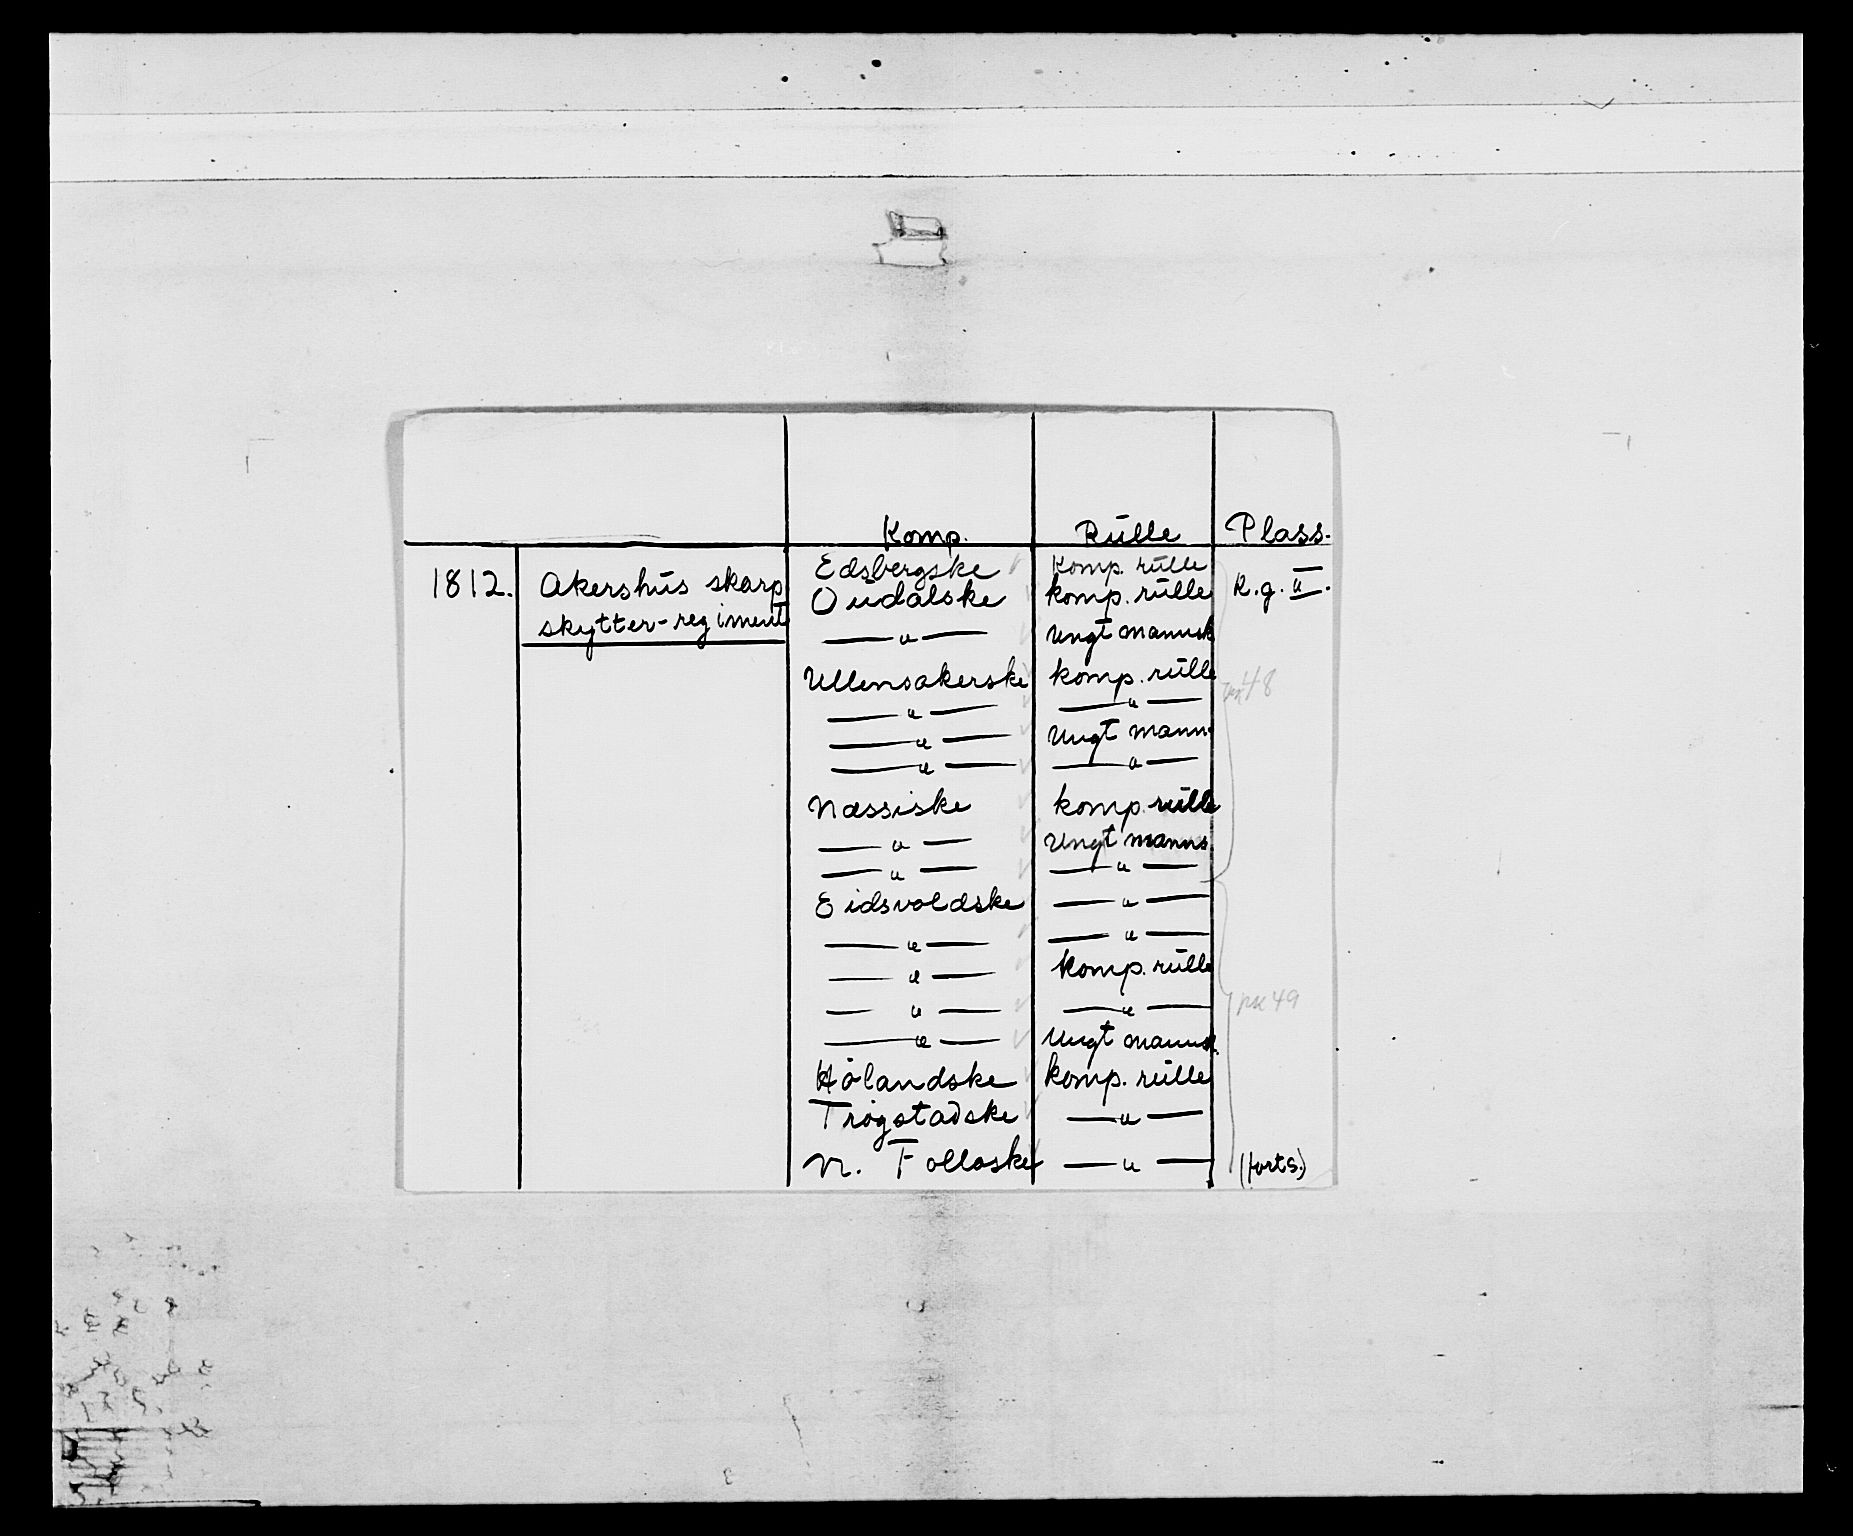 Komp. Rülle Plass.
1812. Akershüs skarp Edsbergske Komp. rülle K.g. II.
skytter-regiment Oüdalske komp. rülle
— " — Ungt mannsk
Ullensakerske komp. rülle pk 48
— " — — " —
— " — Ungt mann.
— " — — " —
Næssiske komp. rülle
— " — Ungt manns.
— " — — " —
Eidsvoldske — " —
— " — — " —
— " — Komp. rülle
— " — — " — pk 49
— " — Ungt mannsk.
Hølandske komp. rülle
Trøgstadske — " —
N. Folloske — " — (forts.)